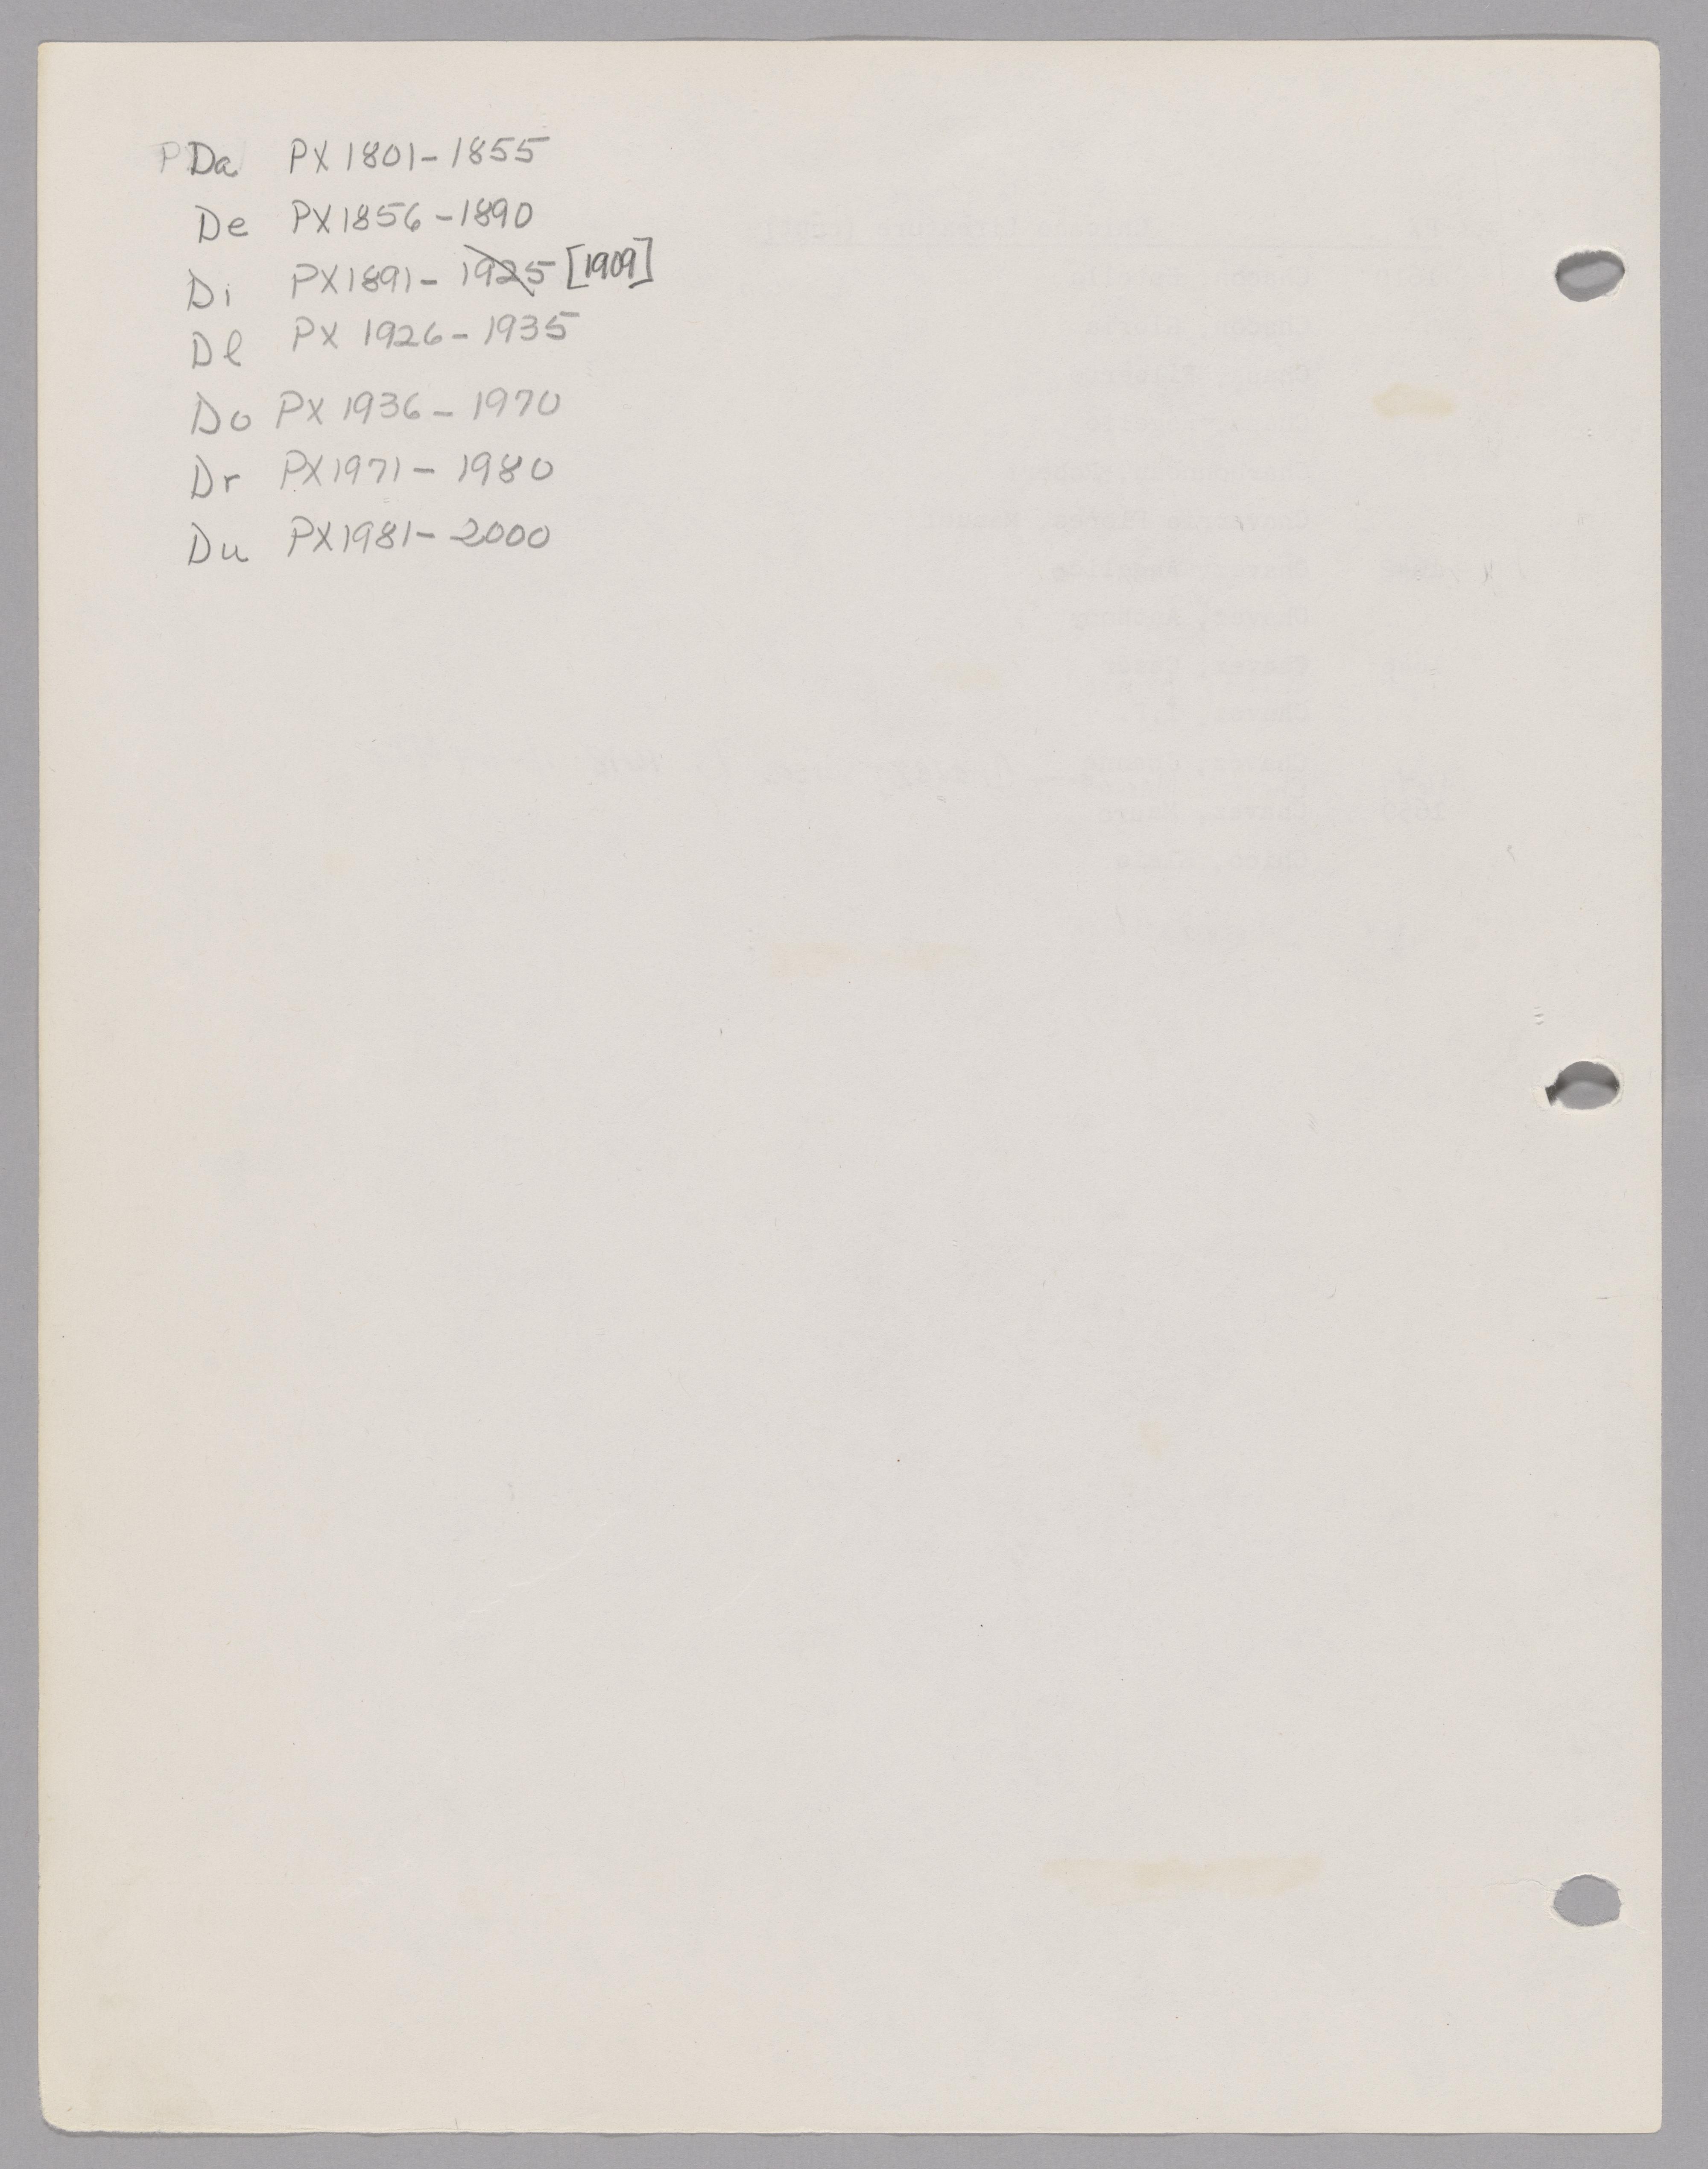 Da PX 1801-1855
De PX1856-1890
Di PX1891- 1925 [1909]
Dl PX 1926-1935
Do PX 1936-1970
Dr PX1971-1980
Du PX1981-2000